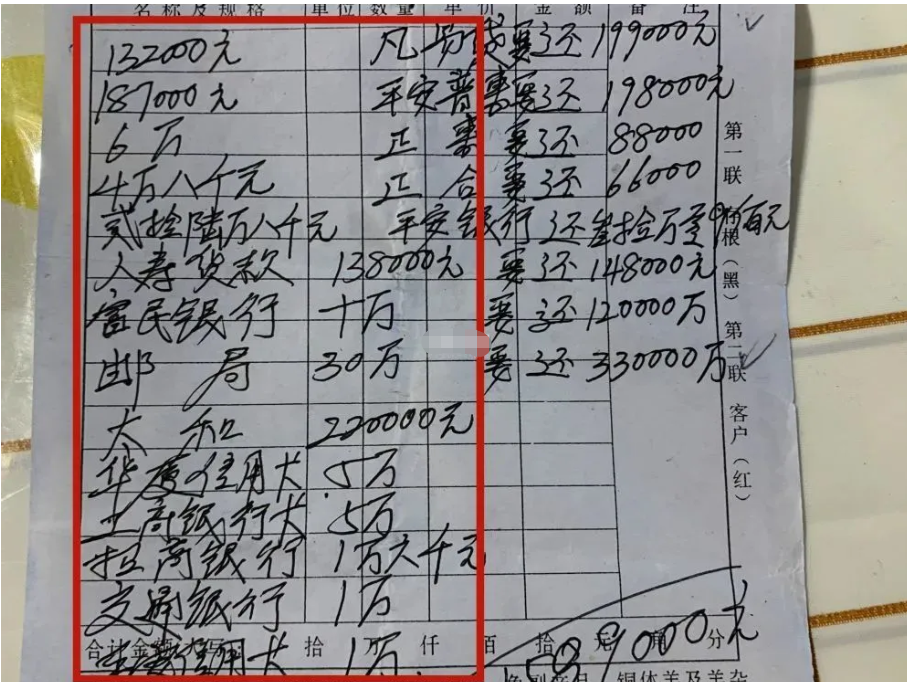 名称及规格 单位 数量 单价 金额 备注
132000元 凡 易钱要还 199000元
187000元 平安普惠要还 198000元
6万 正 惠 要还 88000
4万八千元 正 合 要还 66000
贰拾陆万八千元 平安银行 还叁拾万零
人寿贷款 138000元 要还 148000元
富民银行 十万 要还 120000万
邮局 30万 要还 330000万
太和 220000元
华夏信用卡 5万
工商银行卡 5万
招商银行 1万六千元
交通银行 1万
合计金额 拾 万 仟 佰 拾 元 角 分
信用卡 1万
99000元
铜体羊及羊杂
第一联
根(黑)
第二联
客户(红)